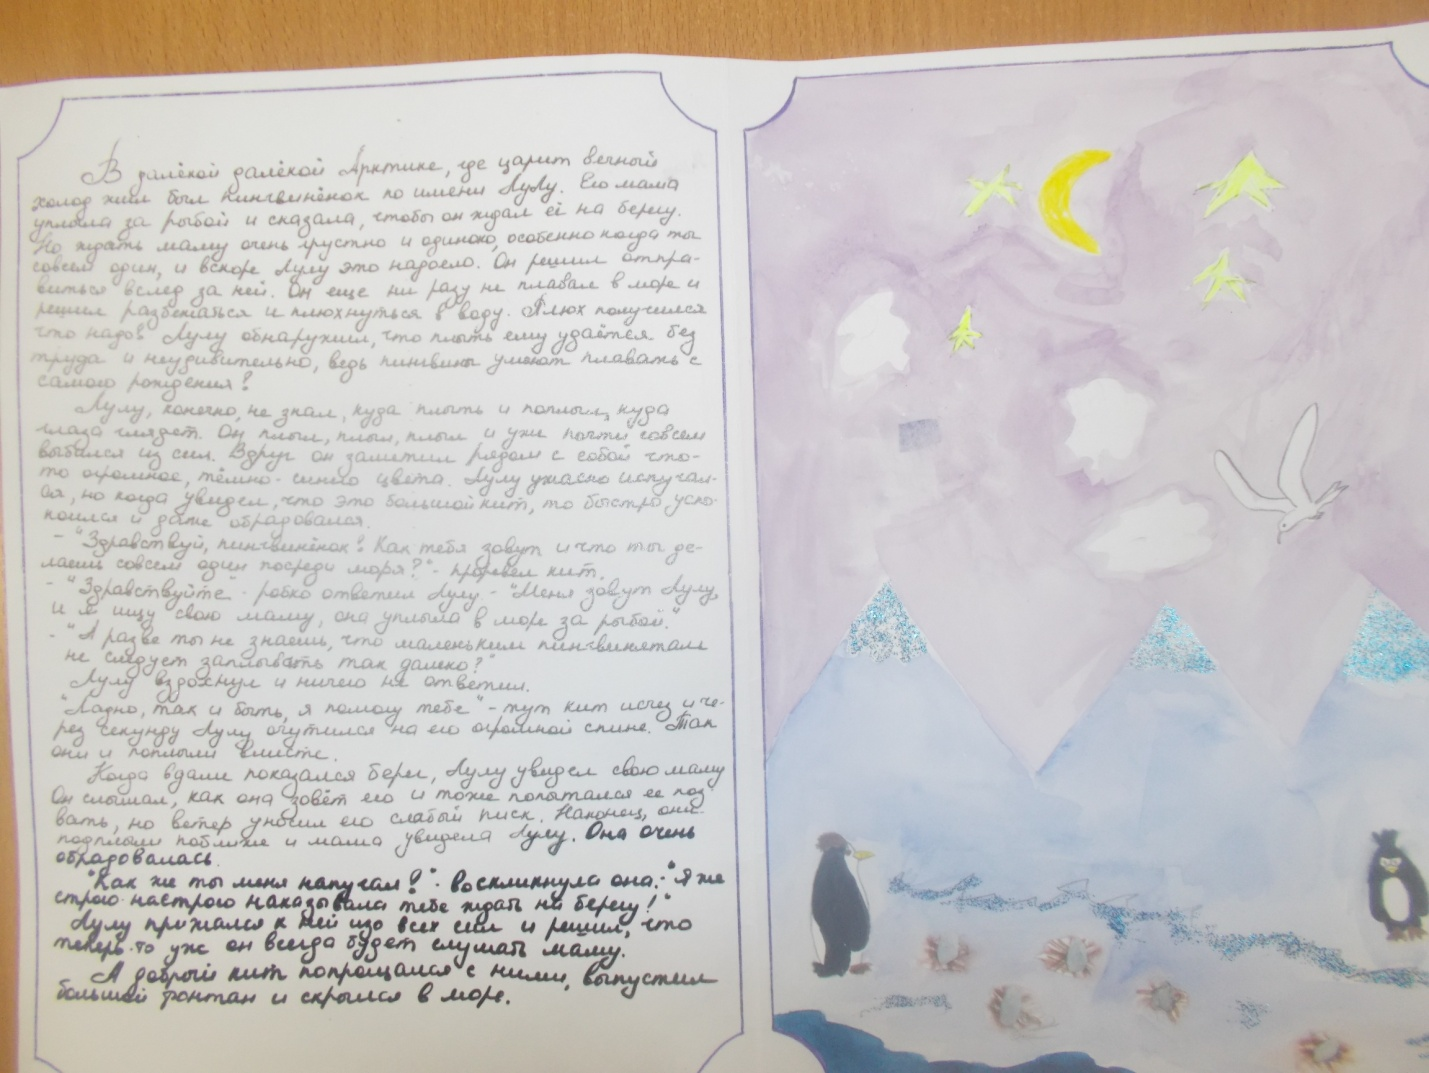 В далёкой далёкой Арктике, где царит вечный
холод жил был пингвинёнок по имени Лулу. Его мама
уплыла за рыбой и сказала, чтобы он ждал её на берегу.
Но ждать маму очень грустно и одиноко, особенно когда ты
совсем один, и вскоре Лулу это надоело. Он решил отпра-
виться вслед за ней. Он еще ни разу не плавал в море и
решил разбежаться и плюхнуться в воду. Плюх получился
что надо! Лулу обнаружил, что плыть ему удаётся без
труда и неудивительно, ведь пингвины умеют плавать с
самого рождения!
Лулу, конечно, не знал, куда плыть и поплыл, куда
глаза глядят. Он плыл, плыл, плыл и уже почти совсем
выбился из сил. Вдруг он заметил рядом с собой что-
то огромное, тёмно-синего цвета. Лулу ужасно испугал-
ся, но когда увидел, что это большой кит, то быстро успо-
коился и даже обрадовался.
- "Здравствуй, пингвинёнок! Как тебя зовут и что ты де-
лаешь совсем один посреди моря?" - проревел кит.
- "Здравствуйте" - робко ответил Лулу - "Меня зовут Лулу,
и я ищу свою маму, она уплыла в море за рыбой."
- "А разве ты не знаешь, что маленьким пингвинятам
не следует заплывать так далеко?"
Лулу вздохнул и ничего не ответил.
"Ладно, так и быть, я помогу тебе" - тут кит исчез и че-
рез секунду Лулу очутился на его огромной спине. Так
они и поплыли вместе.
Когда вдали показался берег, Лулу увидел свою маму
Он слышал, как она зовёт его и тоже попытался ее поз
вать, но ветер уносил его слабый писк. Наконец, они
подплыли поближе и мама увидела Лулу. Она очень
обрадовалась.
"Как же ты меня напугал!" - воскликнула она. - "Я же
строго-настрого наказывала тебе ждать на берегу!"
Лулу прижался к ней изо всех сил и решил, что
теперь-то уж он всегда будет слушать маму.
А добрый кит попрощался с ними, выпустил
большой фонтан и скрылся в море.